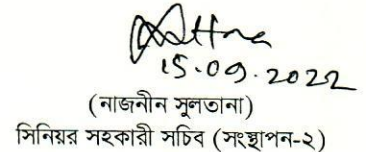 15.09.2022
(নাজনীন সুলতানা)
সিনিয়র সহকারী সচিব (সংস্থাপন-২)